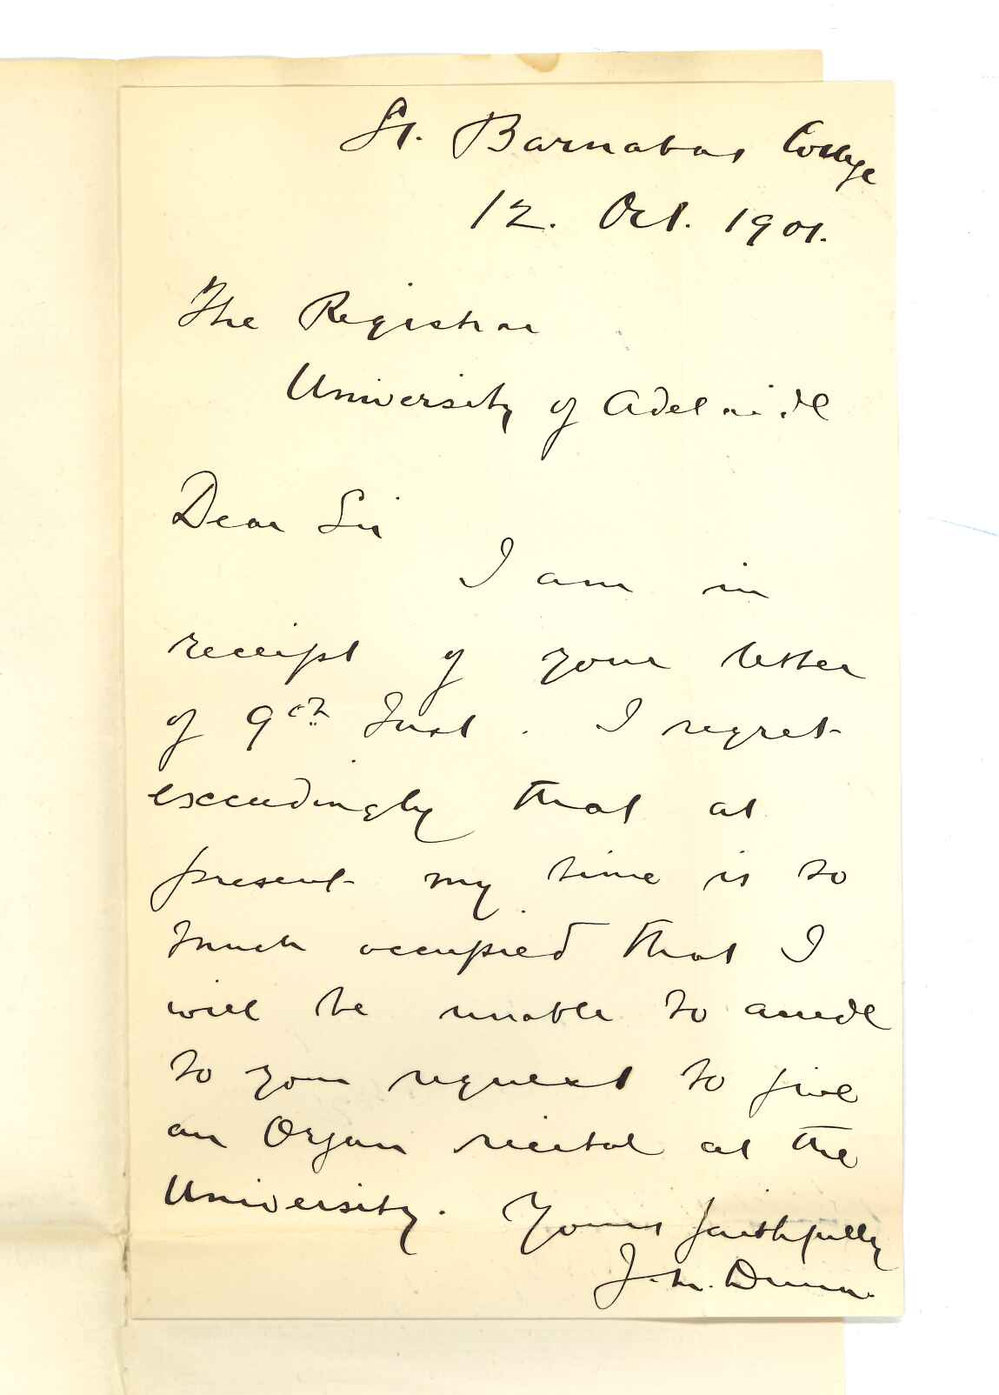 St. Barnabas College
12. Oct. 1901.
The Registrar
University of Adelaide
Dear Sir
I am in
receipt of your letter
of 9th Inst. I regret
exceedingly that at
present my time is so
much occupied that I
will be unable to accede
to your request to give
an Organ recital at the
University. Yours faithfully
J. M. Dunn.